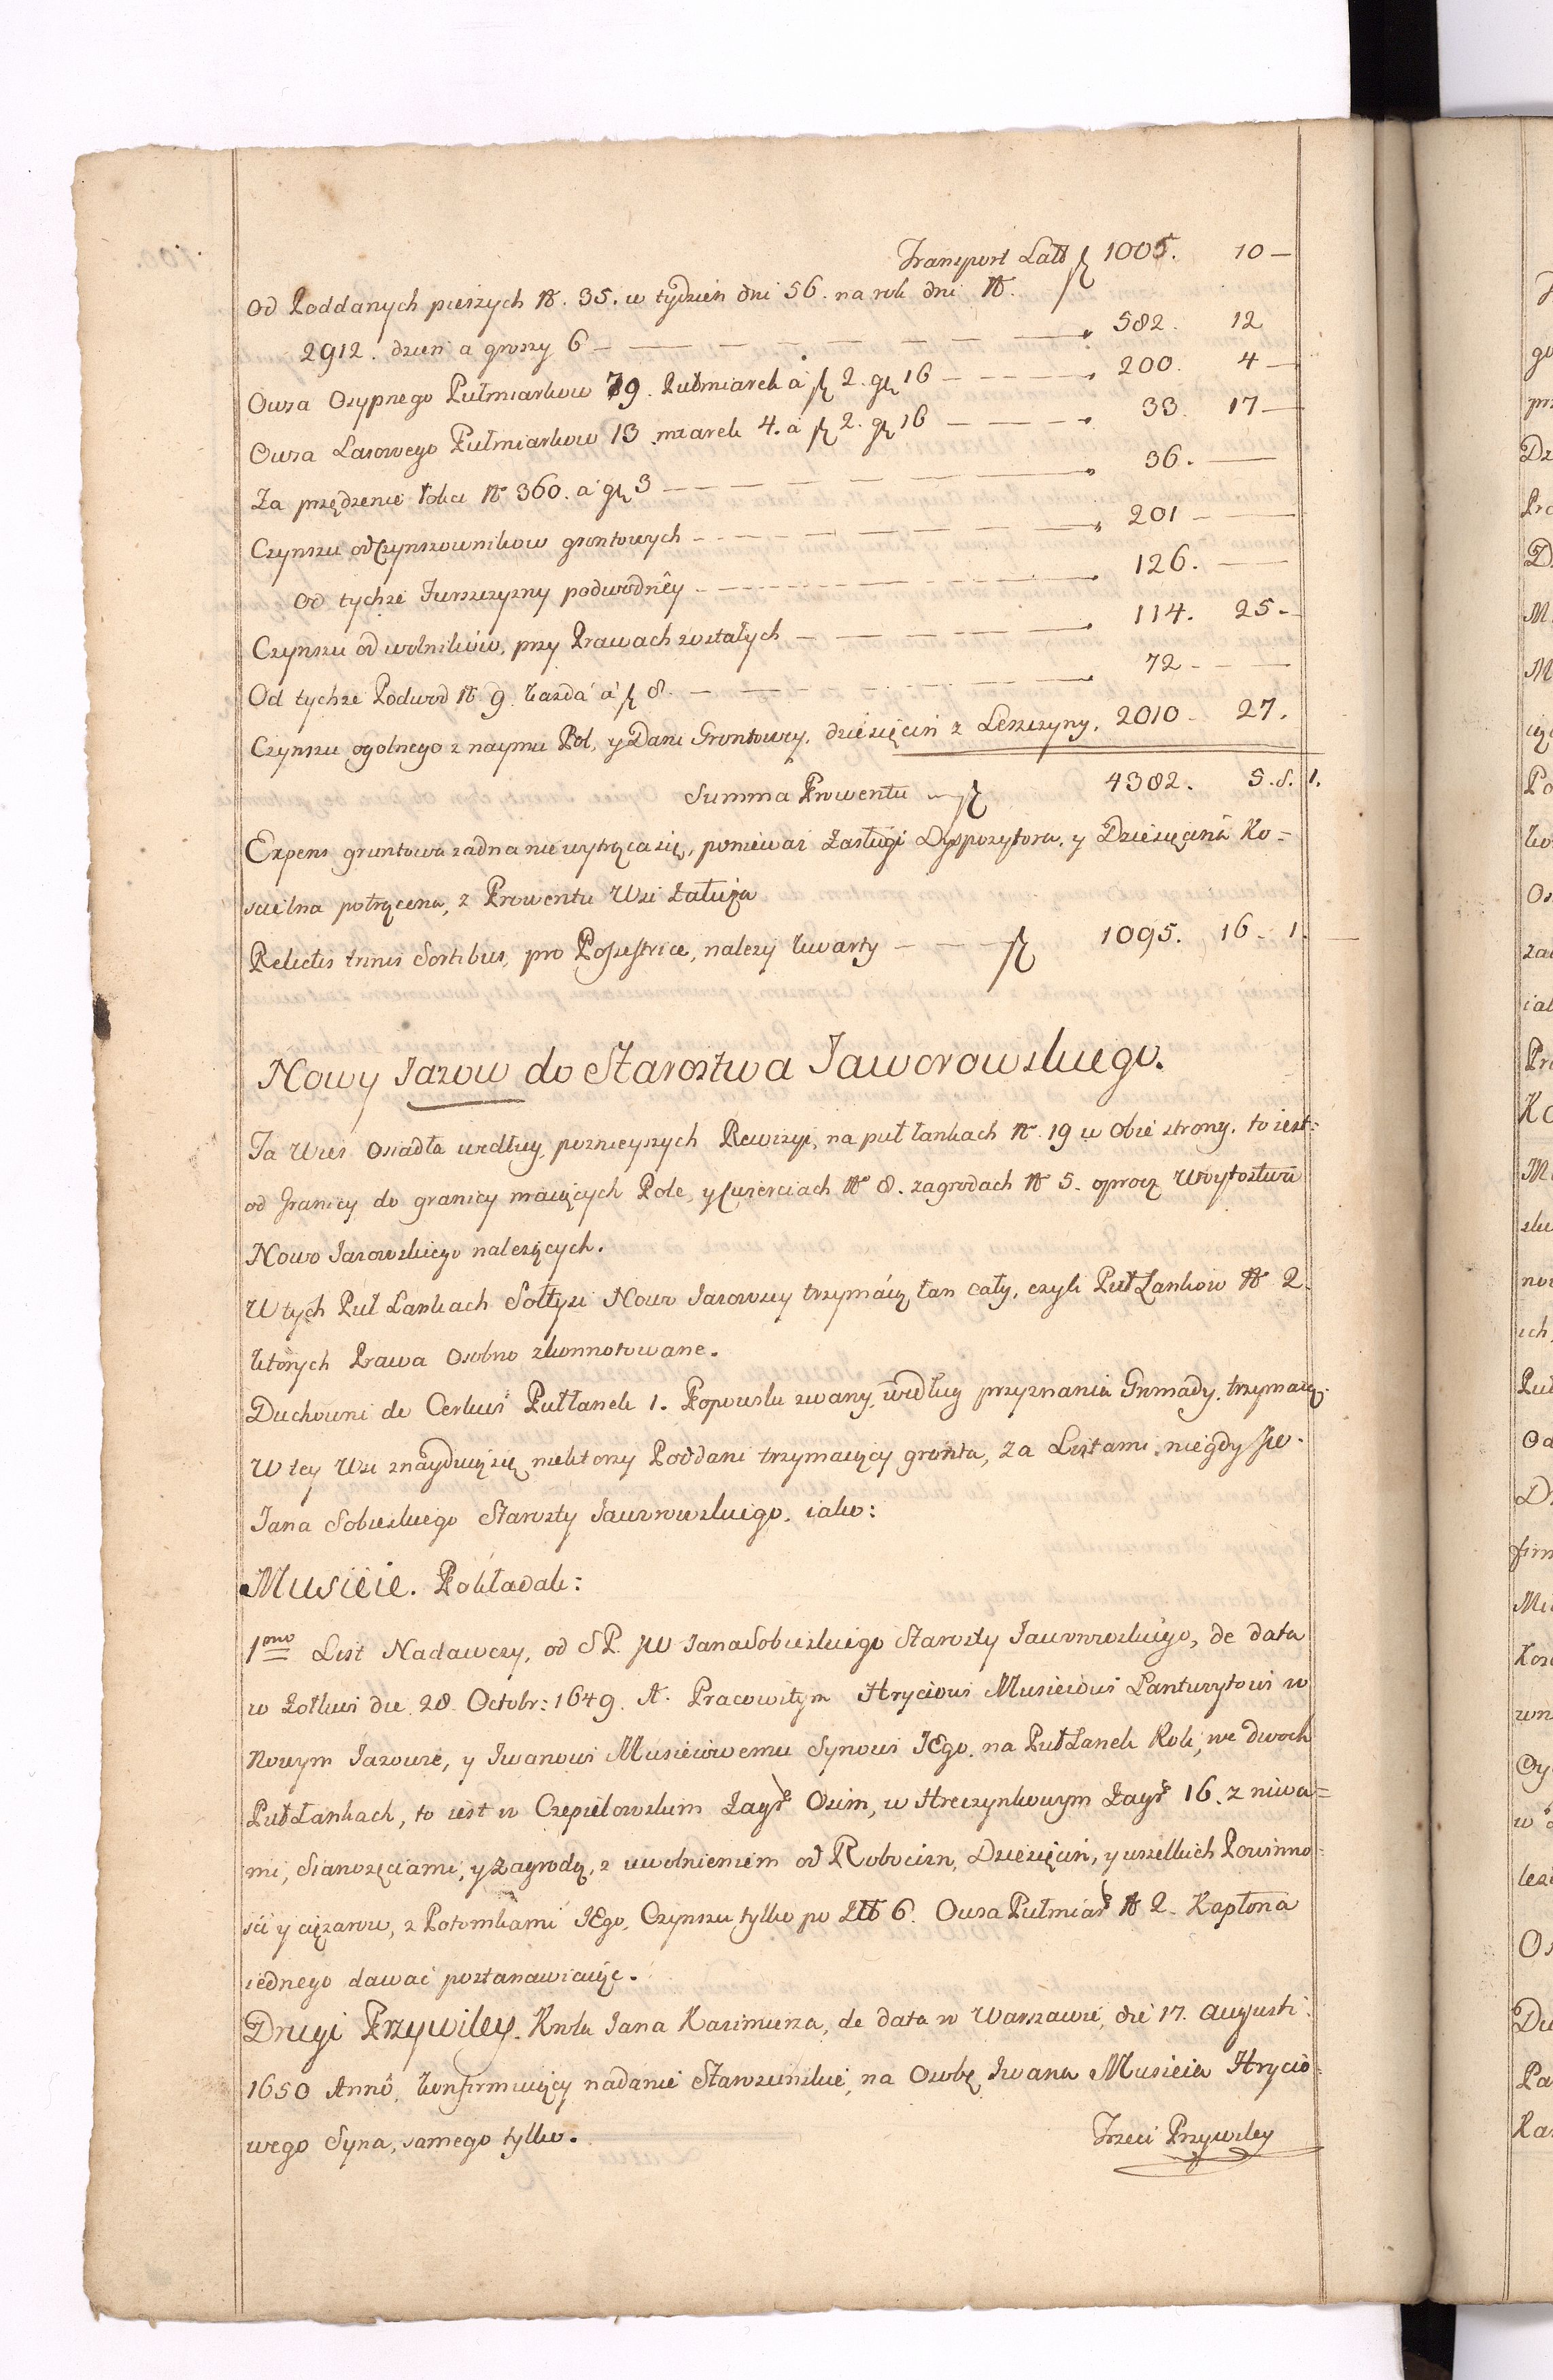 Transport Latt zł 1005. 10 —
Od Poddanych pieszych № 35. w tydzien dni 56. na rok dni №
2912. dzien a groszy 6 — 582. 12
Owsa Osypnego Pułmiarkow 79. Pułmiarek a zł 2. gr 16 — 200. 4 —
Owsa Łasowego Pułmiarkow 13 miarek 4. a zł 2. gr 16 — 33. 17 —
Za przędzenie łokci № 360. a gr 3 — 36. —
Czynszu od Czynszownikow grontowych — 201 —
Od tychze Juszczyzny podwodnêy — 126. —
Czynszu od wolnikow, przy Prawach zostałych — 114. 25 —
Od tychze Podwod № 9. kazda a zł 8. — 72 —
Czynszu ogolnego z naymu Pol, y Dani Grontowey, dziesięcin z Leszczyny. 2010 — 27.
Summa Prowentu — zł 4382. 5. s. 1.
Expens gruntowa zadna nie wytrąca się, poniewaz Zasługi Dyspozytora, y Dziesięcina Ko=
scielna potrącona, z Prowentu Wsi Załuża
Relictis trinis Sortibus, pro Possestrice, nalezy kwarty — zł 1095. 16 — 1.
Nowy Jazow do Starostwa Jaworowskiego.
Ta Wies Osiadła według poznieyszych Rewizyi, na puł łankach № 19 w Obie strony. to iest:
od Granicy do granicy maiących Pole, y Cwierciach № 8. zagrodach № 5. oprocz Woytostwa
Nowo Jazowskiego nalezących.
W tych Puł Łankach Sołtysi Nowo Jazowscy trzymaią łan cały, czyli Puł Łankow № 2.
ktorych Prawa Osobno zkonnotowane.
Duchowni do Cerkwi Pułłanek 1. Popowski zwany, według przyznania Gromady, trzymaią.
W tey Wsi znayduią się niektorzy Poddani trzymaiący gronta, za Listami niegdy JW.
Jana Sobieskiego Starosty Jaworowskiego. iako:
Musieie. Pokładali:
1mo List Nadawczy, od SP. JW Jana Sobieskiego Starosty Jaworowskiego, de data
w Zołkwi die 28. Octobr: 1649. A. Pracowitym Hryciowi Musieiowi Lantwoytowi w
Nowym Jazowie, y Iwanowi Musieiowemu Synowi JEgo, na Puł Łanek Roli, we dwoch
Puł Łankach, to iest w Czepielowskim Zagr Osim, w Hreczynkowym Zagr 16. z niwa=
mi, Sianozęciami, y Zagrodą, z uwolnieniem od Robocizn, Dziesięcin, y wszelkich Powinno
sci y cięzarow, z Potomkami JEgo, Czynszu tylko po Złt 6. Owsa Pułmiar № 2. Kapłona
iednego dawac postanawiaiąc.
Drugi Przywiley. Krola Jana Kazimierza, de data w Warszawie, die 17. Augusti
1650 Annô, konfirmuiący nadanie Starościnskie, na Osobę Iwana Musieia Hrycio
wego Syna, samego tylko.
Trzeci Przywiley